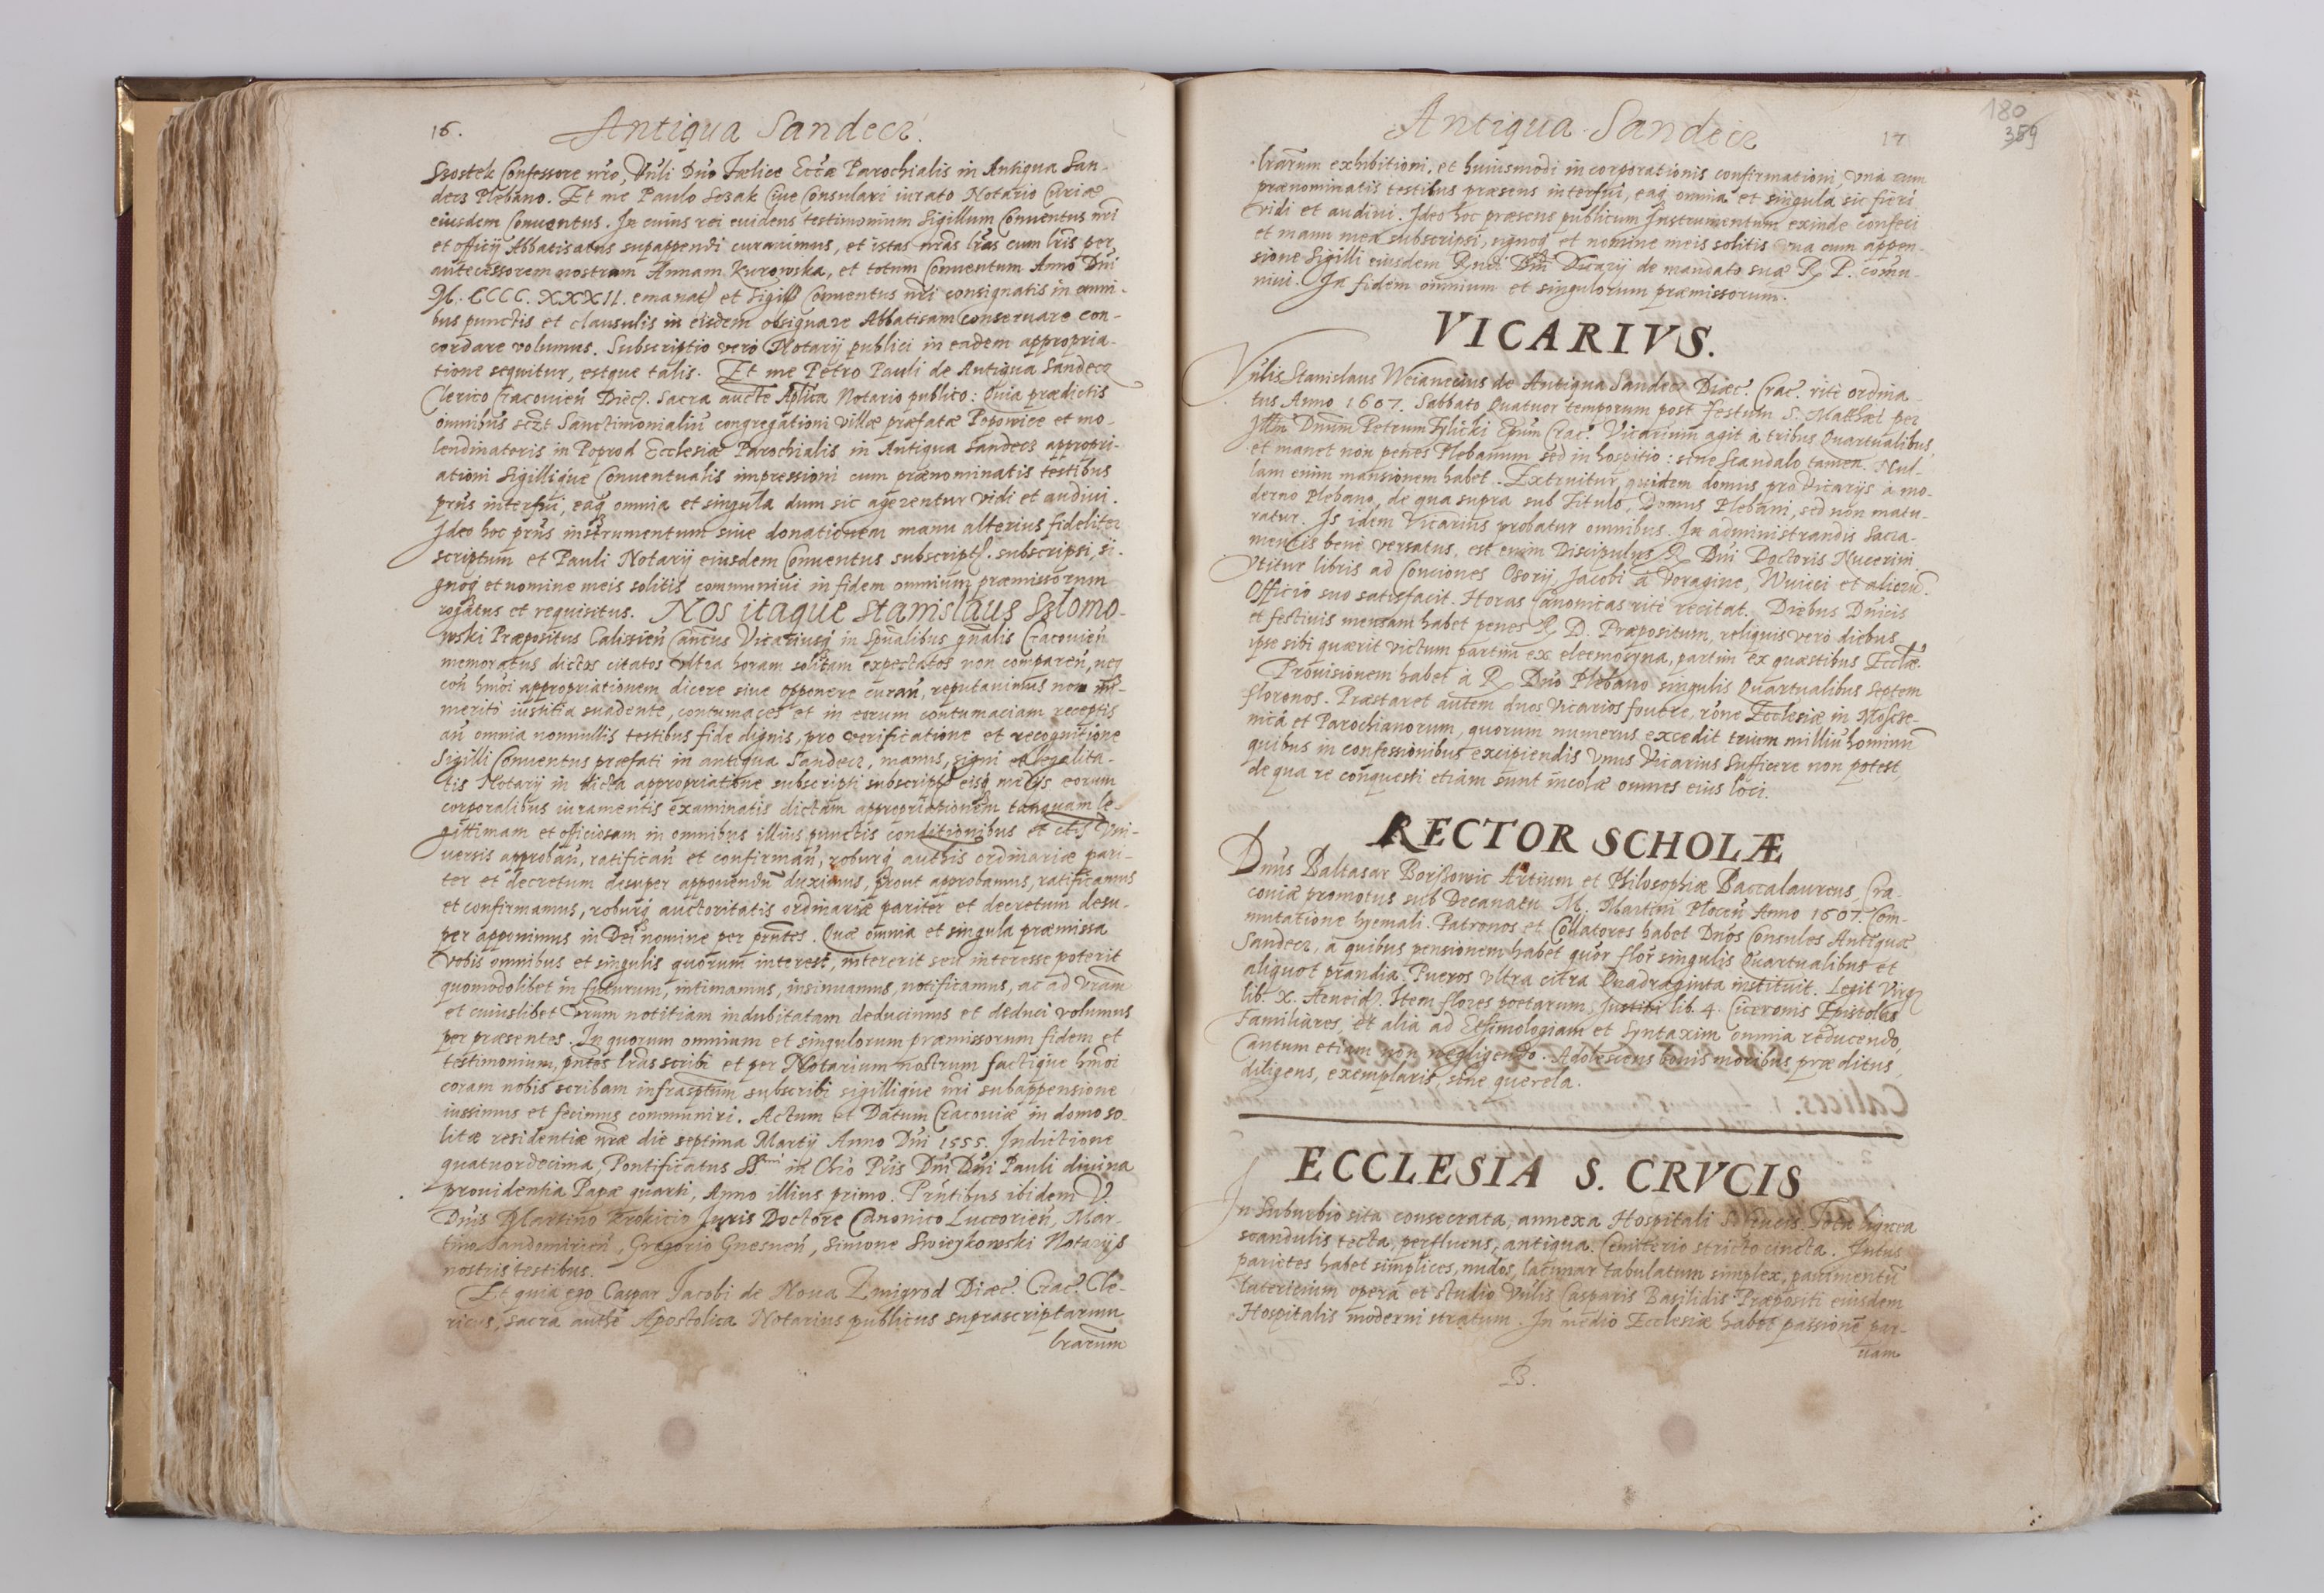 16. Antiqua Sandecz.
Szostek Confessore nro, Vnli Dno Fælice Eccæ Parochialis in Antiqua San-
decz Plebano. Et me Paulo Sosak Ciue Consulari iurato Notario Curiæ
eiusdem Conuentus. In cuius rei euidens testimonium Sigillum Conuentus nri
et officij Abbatisatus supappendi curauimus, et istas nras lras cum lris per
antecessorem nostram Annam Kurowska, et totum Conuentum Anno Dni
M. CCCC. XXXII. emanat et Sigillo Conuentus nri consignatis in omni-
bus punctis et clausulis in eisdem obsignare Abbatisam Conseruare con-
cordare volumus. Subscriptio verò Notarij publici in eadem appropria-
tione sequitur, estque talis. Et me Petro Pauli de Antiqua Sandecz
Clerico Cracouien Diec. Sacra aucte Aplica Notario publico: Quia prædictis
omnibus sczt Sanctimonialiu congregationi villæ præfatæ Popowice et mo-
lendinatoris in Poprod Ecclesiæ Parochialis in Antiqua Sandecz appropri-
ationi Sigillique Conuentualis impressioni cum prænominatis testibus
prns interfui, eaq omnia et singula dum sic agerentur vidi et audiui.
Ideo hoc prns instrumentum siue donationem manu alterius fideliter
scriptum et Pauli Notarij eiusdem Conuentus subscript. subscripsi, si-
gnoq et nomine meis solitis communiui in fidem omnium præmissorum
rogatus et requisitus. Nos itaque Stanislaus Szlomo-
wski Præpositus Calissien Cancus Vicariusq in Spualibus gnalis Cracouien
memoratus dictos citatos vltra horam solitam expectatos non comparen, neq
con hmoi appropriationem dicere siue opponere curan, reputauimus non im-
meritò iustitia suadente, contumaces et in eorum contumaciam receptis
an omnia nonnullis testibus fide dignis, pro verificatione et recognitione
Sigilli Conuentus præfati in antiqua Sandecz, manus, signi et legalita-
tis Notarij in dicta appropriatione subscripti subscript eisq medijs eorum
corporalibus iuramentis examinatis dictam appropriationem tanquam le-
gittimam et officiosam in omnibus illius punctis conditionibus et ctis vni-
uersis approban, ratifican et confirman, roburq authis ordinariæ pari-
ter et decretum desuper apponendu duximus, prout approbamus, ratificamus
et confirmamus, roburq auctoritatis ordinariæ pariter et decretum desu-
per apponimus in Dei nomine per prntes. Quæ omnia et singula præmissa
vobis omnibus et singulis quorum interest, intererit seu interesse poterit
quomodolibet in futurum, intimamus, insinuamus, notificamus, ac ad vram
et cuiuslibet vrum notitiam indubitatam deducimus et deduci volumus
per præsentes. In quorum omnium et singulorum præmissorum fidem et
testimonium, pntes lras scribi et per Notarium nostrum factique hmoi
coram nobis scribam infrasptum subscribi sigillique nri subappensione
iussimus et fecimus communiri. Actum et Datum Cracouiæ in domo so-
litæ residentiæ nræ die septima Martij Anno Dni 1555. Indictione
quatuordecima, Pontificatus SSmi in Chro Pris Dni Dni Pauli diuina
prouidentia Papæ quarti, Anno illius primo. Prntibus ibidem V.
Dnis Martino Krokicio Juris Doctore Canonico Luceorien, Mar-
tino Sandomirien, Gregorio Gnesnen, Simone Swieykowski Notarijs
nostris testibus.
Et quia ego Caspar Jacobi de Noua Zmigrod Diæc. Crac. Cle-
ricus, sacra authe Apostolica Notarius publicus suprascriptarum
lrarum
180
359
Antiqua Sandecz 17
lrarum exhibitioni, et huiusmodi incorporationis confirmationi, vnà cum
prænominatis testibus præsens interfui, eaq omnia et singula sic fieri
vidi et audiui. Ideo hoc præsens publicum Instrumentum exinde confeci
et manu mea subscripsi, signoq et nomine meis solitis vna cum appen-
sione Sigilli eiusdem Rndi Dni Vicarij de mandato suæ R. P. comu-
niui. In fidem omnium et singulorum præmissorum.
VICARIVS.
Vnlis Stanislaus Weianecius de Antiqua Sandecz Diæc. Crac. ritè ordina-
tus Anno 1607. Sabbato Quatuor temporum post festum S. Matthæi per
Illm Dnum Petrum Tylicki Epum Crac. Vicarium agit à tribus Quartualibus,
et manet non penes Plebanum sed in hospitio: sine scandalo tamen. Nul-
lam enim mansionem habet. Extruitur quidem domus pro Vicarijs à mo-
derno Plebano, de qua supra sub Titulo, Domus Plebani, sed non matu-
ratur. Is idem Vicarius probatur omnibus. In administrandis Sacra-
mentis benè versatus, est enim Discipulus R. Dni Doctoris Nucerini
Vtitur libris ad Conciones Osorij, Jacobi à Voragine, Wuieci et aliorū.
Officio suo satisfacit. Horas Canonicas ritè recitat. Diebus Dnicis
et festiuis mensam habet penes R. D. Præpositum, reliquis verò diebus
ipse sibi quærit victum partim ex eleemosyna, partim ex quæstibus Ecclæ.
Prouisionem habet à R. Dno Plebano singulis Quartualibus septem
florenos. Præstaret autem duos Vicarios fouere, rône Ecclesiæ in Moscze-
nicâ et Parochianorum, quorum numerus excedit trium milliū hominū
quibus in confessionibus excipiendis vnus Vicarius sufficere non potest,
de qua re conquesti etiam sunt incolæ omnes eius loci.
RECTOR SCHOLÆ
Dnus Baltasar Borszowic Artium et Philosophiæ Baccalaureus, Cra-
couiæ promotus sub Decanatu M. Martini Plocen Anno 1607. Com-
mutatione hyemali. Patronos et Collatores habet Dnos Consules Antiquæ
Sandecz, à quibus pensionem habet quor flor singulis Quartualibus et
aliquot prandia. Pueros vltra citra Quadraginta instituit. Legit Virg.
lib. X. Aeneid. Item flores poetarum, Justini lib. 4. Ciceronis Epistolas
Familiares, et alia ad Ethimologiam et Syntaxim omnia reducendo,
Cantum etiam non negligendo. Adolescens bonis moribus præditus,
diligens, exemplaris, sine querela.
ECCLESIA S. CRVCIS
In Suburbio sita consecrata, annexa Hospitali S. Crucis. Tota lignea
scandulis tecta, perfluens, antiqua. Cæmiterio stricto cincta. Intus
parietes habet simplices, nudos, lacunar tabulatum simplex, pauimentū
latericium operâ et studio Vnlis Casparis Basilidis Præpositi eiusdem
Hospitalis moderni stratum. In medio Ecclesiæ habet passionē par-
uam
B.